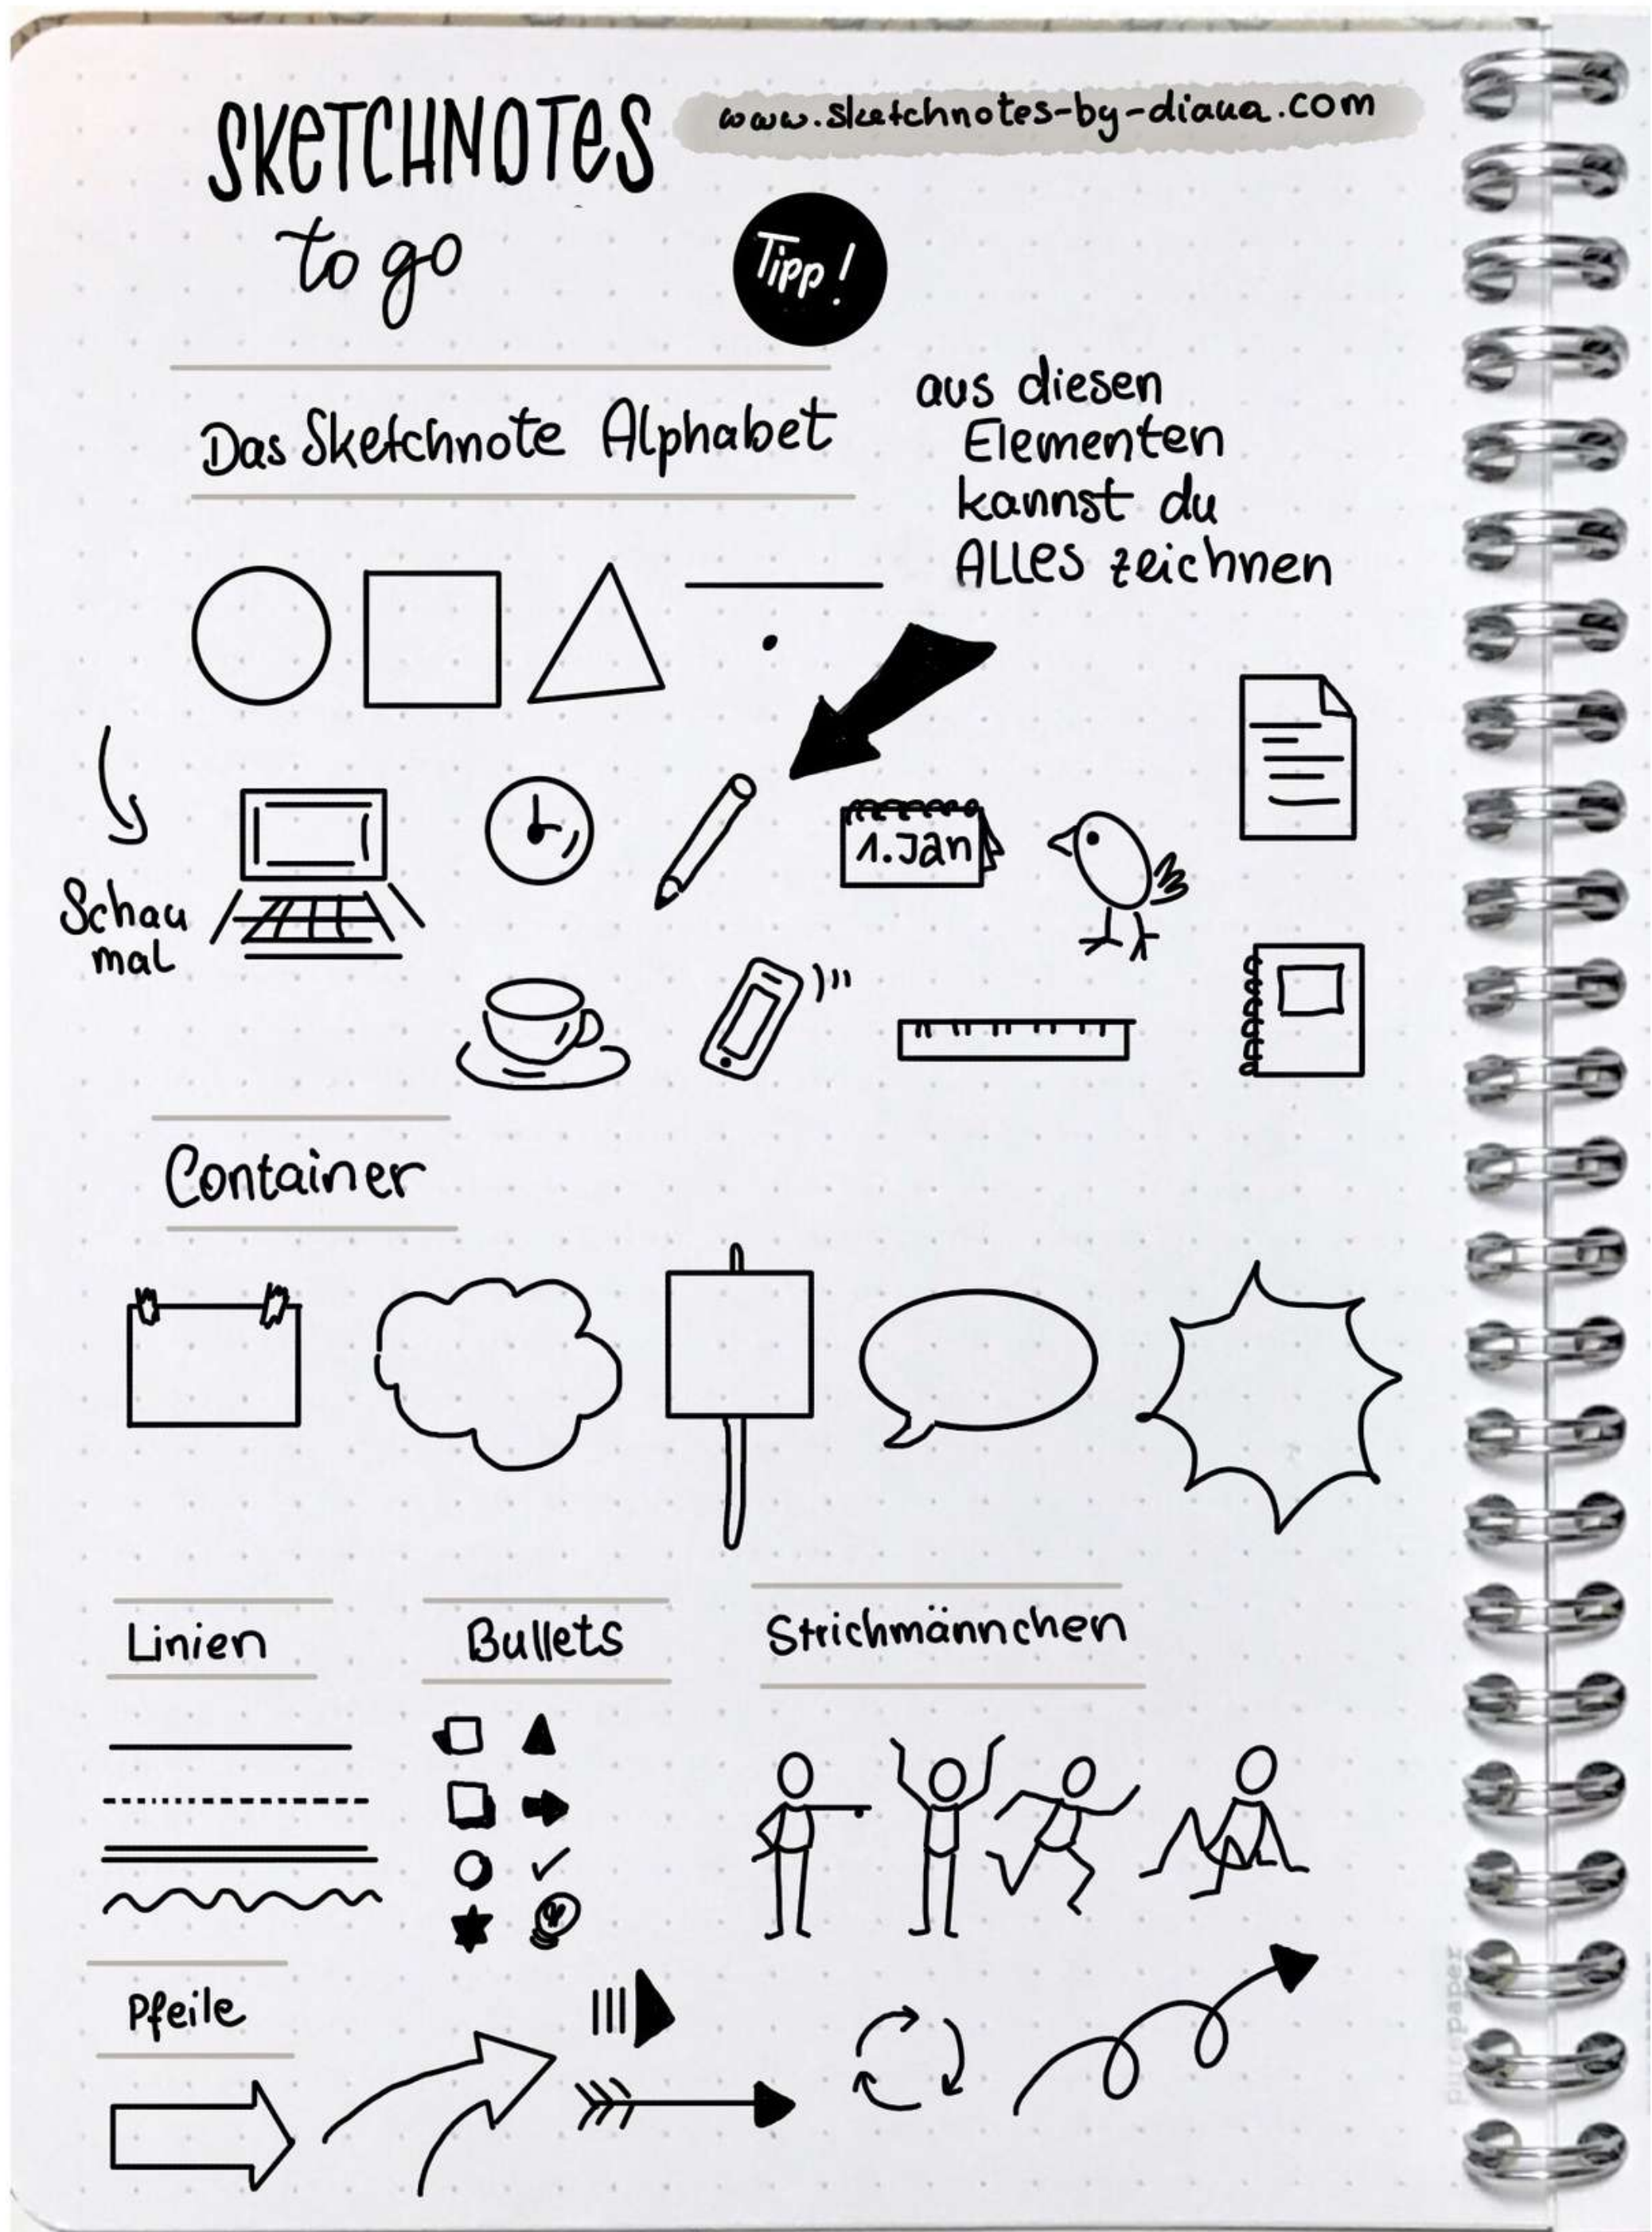 SKETCHNOTES
to go
www.sketchnotes-by-diana.com
Tipp!
Das Sketchnote Alphabet
aus diesen
Elementen
kannst du
ALLES zeichnen
1.Jan
Schau
mal
Container
Linien
Bullets
Strichmännchen
Pfeile
purepaper